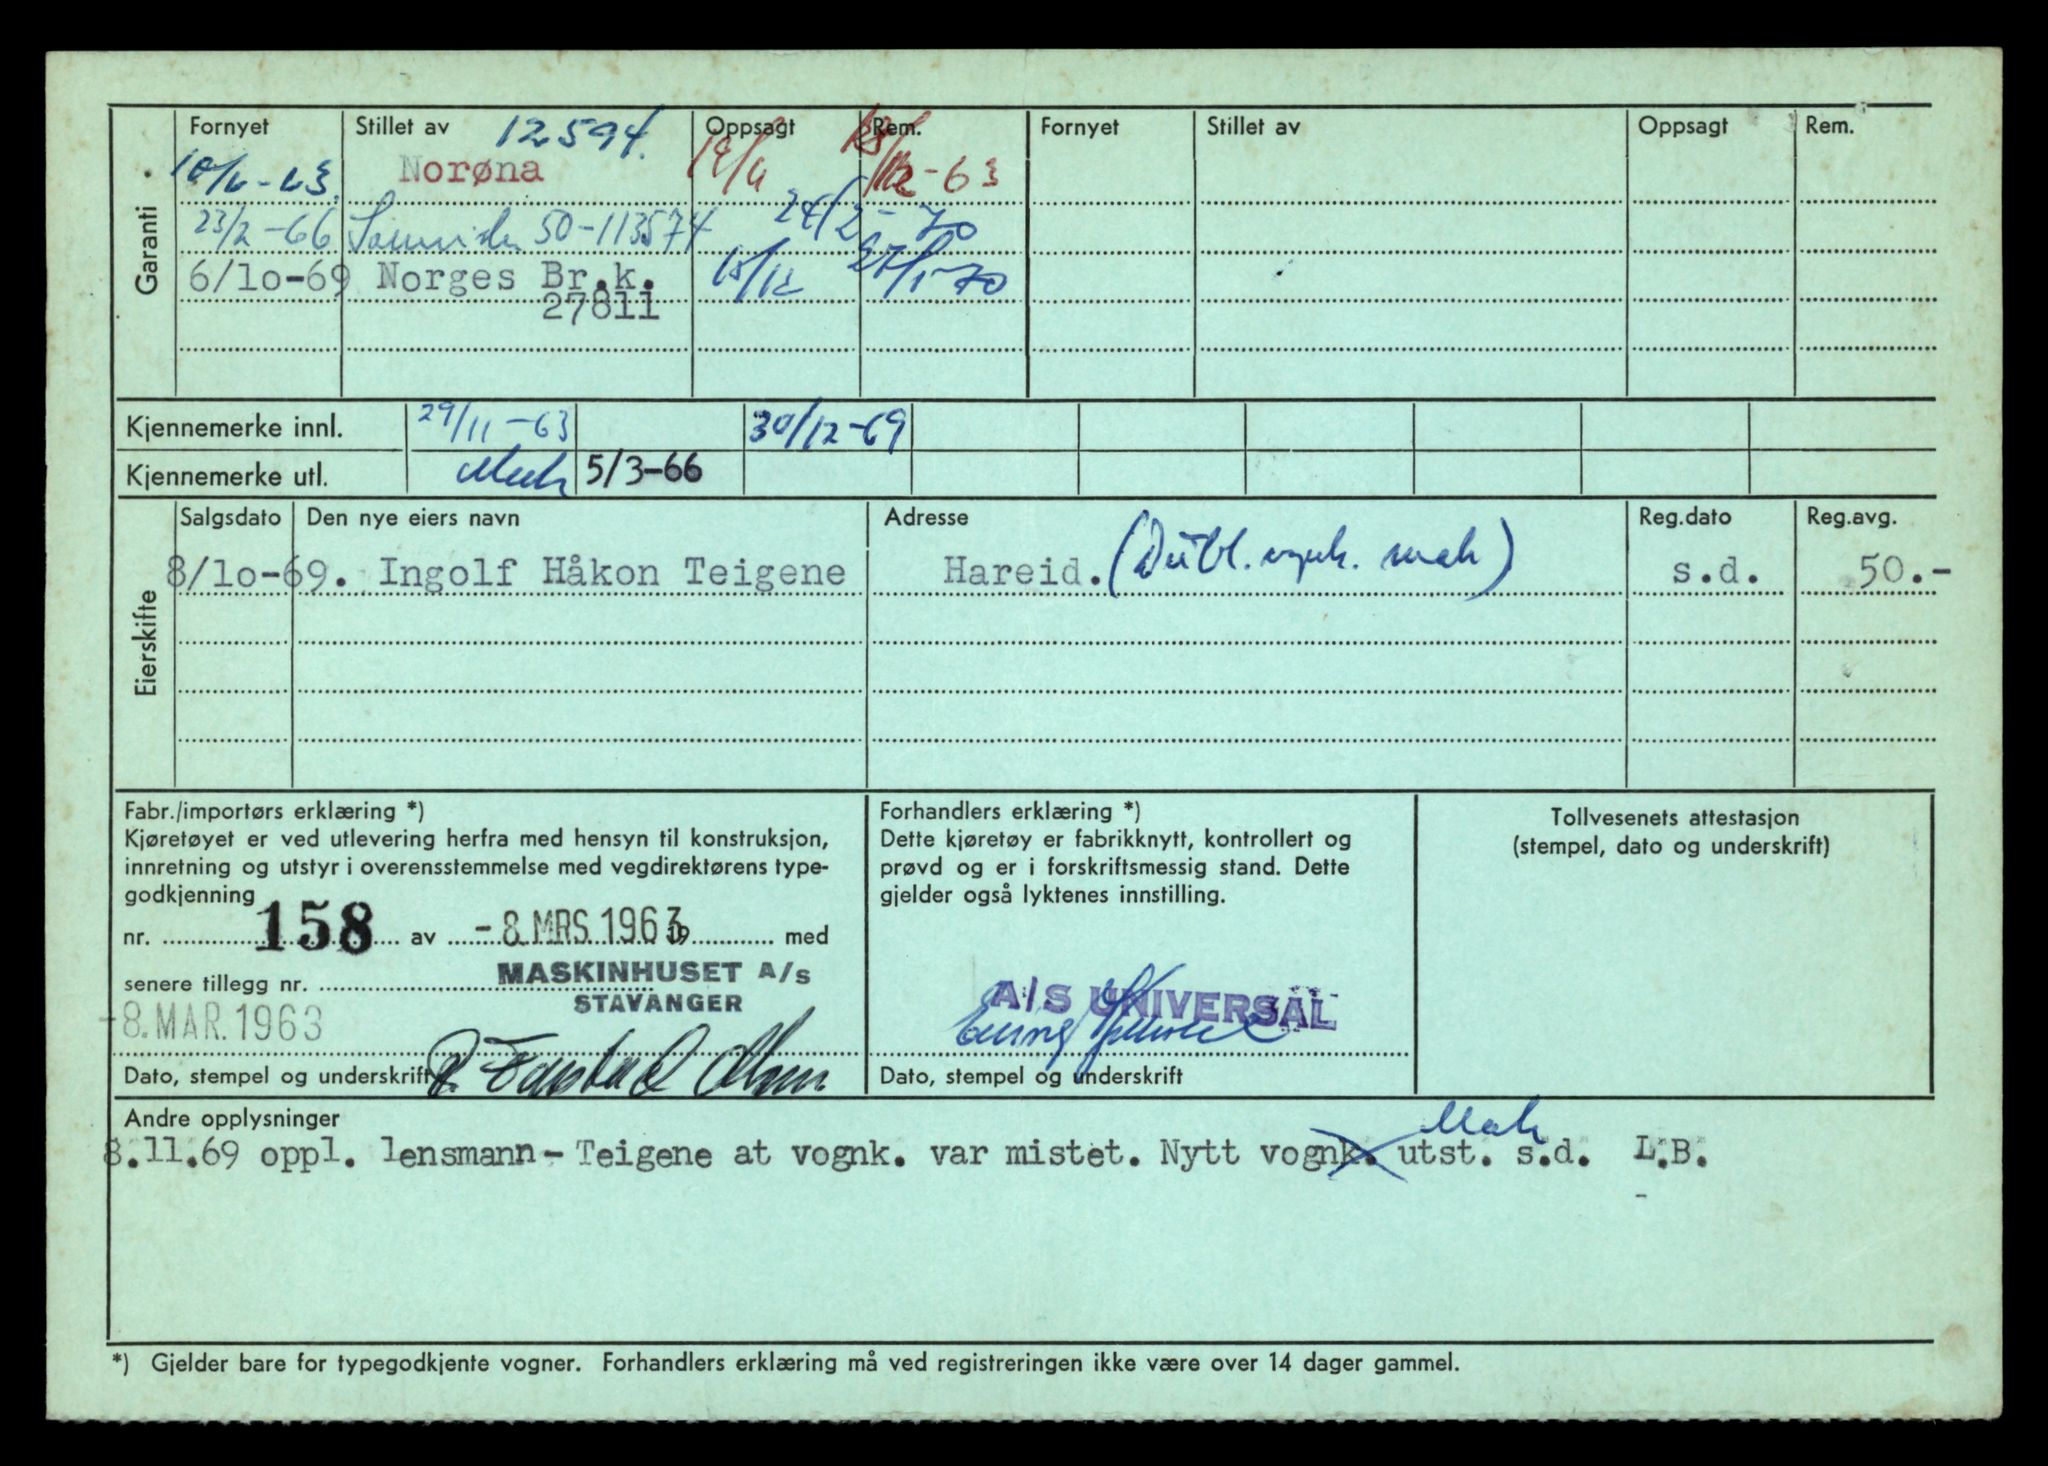 Fornyet Stillet av 12594. Oppsagt Rem. Fornyet Stillet av Oppsagt Rem.
Garanti
Norøna -63
23/2-66 50-113574 24/2-70
6/1o-69 Norges Br.k. 15/12 27/1-70
27811
Kjennemerke innl. 29/11-63 30/12-69
Kjennemerke utl. 5/3-66
Eierskifte
Salgsdato Den nye eiers navn Adresse Reg.dato Reg.avg.
8/1o-69. Ingolf Håkon Teigene Hareid. (Dubl. vognk. mak) s.d. 50.-
Fabr./importørs erklæring *)
Kjøretøyet er ved utlevering herfra med hensyn til konstruksjon,
innretning og utstyr i overensstemmelse med vegdirektørens type-
godkjenning
nr. 158 av -8. MRS. 1963 19 med
senere tillegg nr. MASKINHUSET A/S
STAVANGER
-8. MAR. 1963
Dato, stempel og underskrift
Forhandlers erklæring *)
Dette kjøretøy er fabrikknytt, kontrollert og
prøvd og er i forskriftsmessig stand. Dette
gjelder også lyktenes innstilling.
A/S UNIVERSAL
Dato, stempel og underskrift
Tollvesenets attestasjon
(stempel, dato og underskrift)
Andre opplysninger
Mak
8.11.69 oppl. lensmann-Teigene at vognk. var mistet. Nytt vognk. utst. s.d. L.B.
*) Gjelder bare for typegodkjente vogner. Forhandlers erklæring må ved registreringen ikke være over 14 dager gammel.